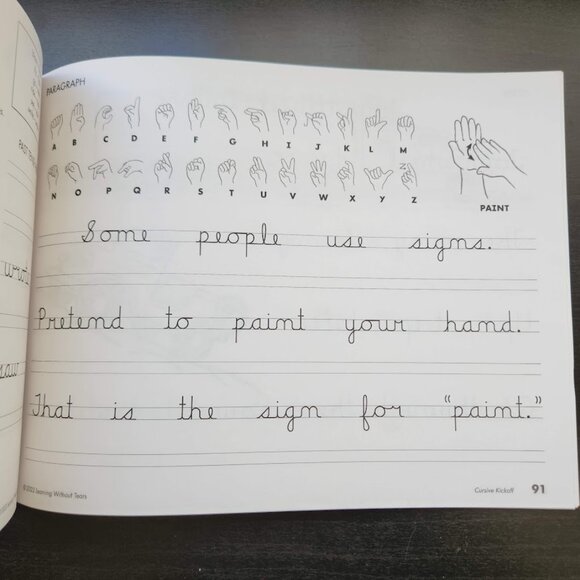 PARAGRAPH
A B C D E F G H I J K L M
N O P Q R S T U V W X Y Z
PAINT
Some people use signs.
Pretend to paint your hand.
That is the sign for “paint.”
saw
Learning Without Tears
Cursive Kickoff 91